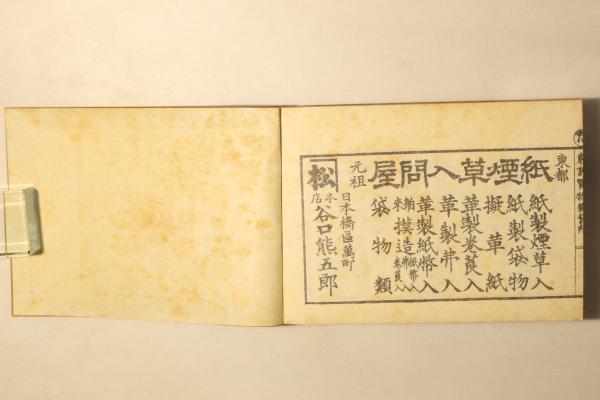 東都
紙煙草入問屋
紙製煙草入
紙製袋物
擬革紙
革製巻莨入
革製弗入
革製紙幣入
舶来摸造紙幣入弗入巻莨入
袋物類
元祖
松本店
日本橋區萬町
谷口熊五郎